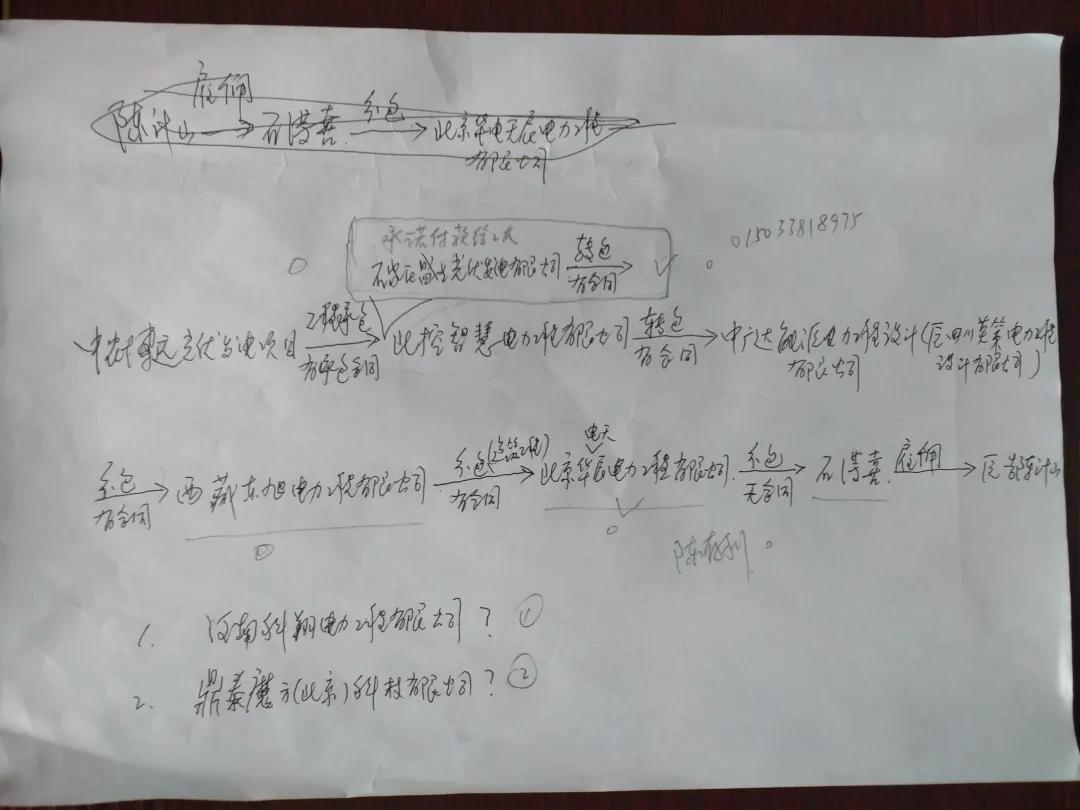 雇佣
陈计山 → 石 喜 分包 → 北京华电天辰电力工程
有限公司
承诺付款给工人
石家庄盛 光伏发电有限公司 转包 有合同
015033818975
中 光伏发电项目 工程承包 有承包合同 → 北控智慧电力工程有限公司 转包 有合同 → 中广达能源电力工程设计有限公司(原四川 电力工程设计有限公司)
分包 有合同 → 西藏东旭电力工程有限公司 分包( 工程) 有合同 → 北京华电天辰电力工程有限公司 分包 无合同 → 石 喜 雇佣 → 原告陈计山
陈存利
1. 河南科翔电力工程有限公司? ①
2. 鼎泰 方(北京)科技有限公司? ②